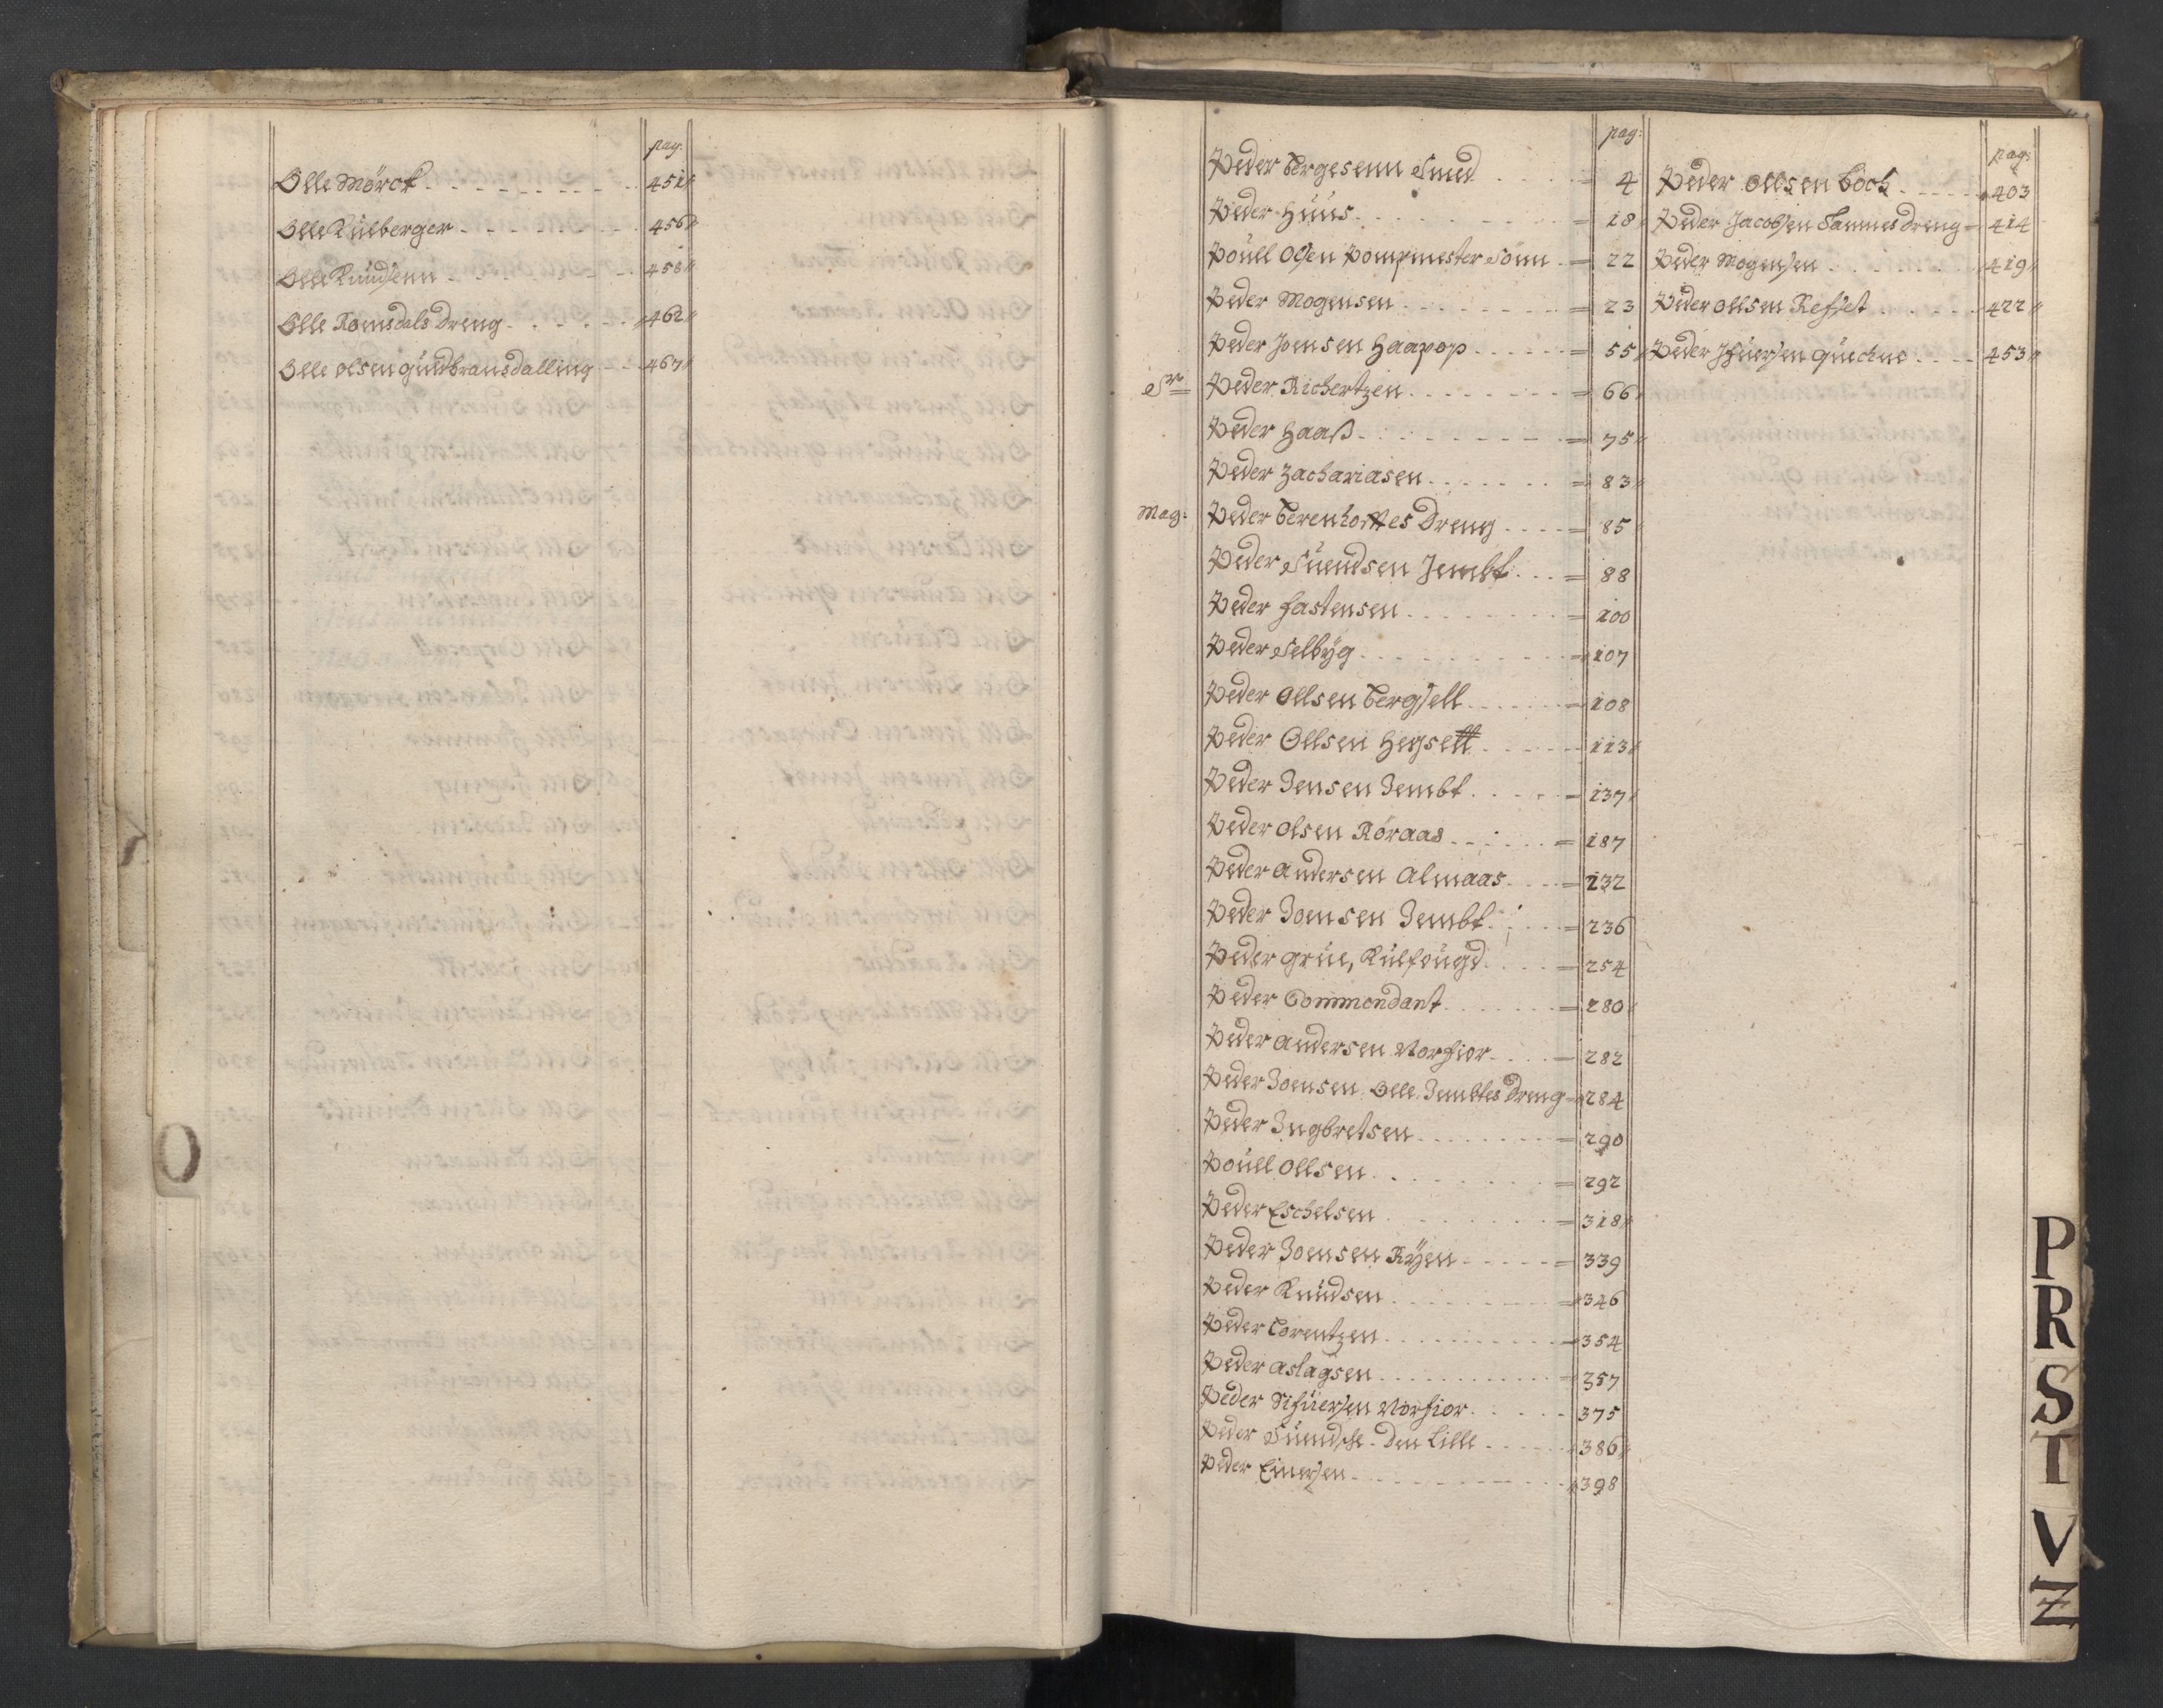 pag:
Olle Mörch 451
Olle Külberger 456
Olle Knüdsenn 458
Olle Romsdals Dreng 462
Olle olsen güldbransdalling 467
O
pag:
Peder Bergesenn Smed 4
Peder Hüüs 18
Poüll Olsen Pompmester Sönn 22
Peder Mogensen 23
Peder Joensen Haapop 55
Sr Peder Richertzen 66
Peder Haaß 75
Peder Zachariasen 83
Mag: Peder Berenhofftes Dreng 85
Peder Süendsen Jembt 88
Peder fastensen 100
Peder Selbÿg 107
Peder Ollsen Bergsell 108
Peder Ollsen Hegsett 113
Peder Jensen Jembt 137
Peder olsen Röraas 187
Peder andersen Almaas 232
Peder Joensen Jembt 236
Peder grüe, Külfougd 254
Peder Commendant 280
Peder andersen Morfior 282
Peder Joensen Olle Jembtes Dreng 284
Peder Ingbretsen 290
Poüll Ollsen 292
Peder Eschelsen 318
Peder Joensen Rÿen 339
Peder Knüdsen 346
Peder Lorentzen 354
Peder aslagsen 357
Peder Sifüersen Morfior 375
Peder Süendsk. Den Lille 386
Peder Einersen 398
pag:
Peder Ollsen Boch 403
Peder Jacobsen Sammes Dreng 414
Peder Mogensen 419
Peder ollsen Refset 422
Peder Ifüersen Quechne 453
P
R
S
T
V
Z